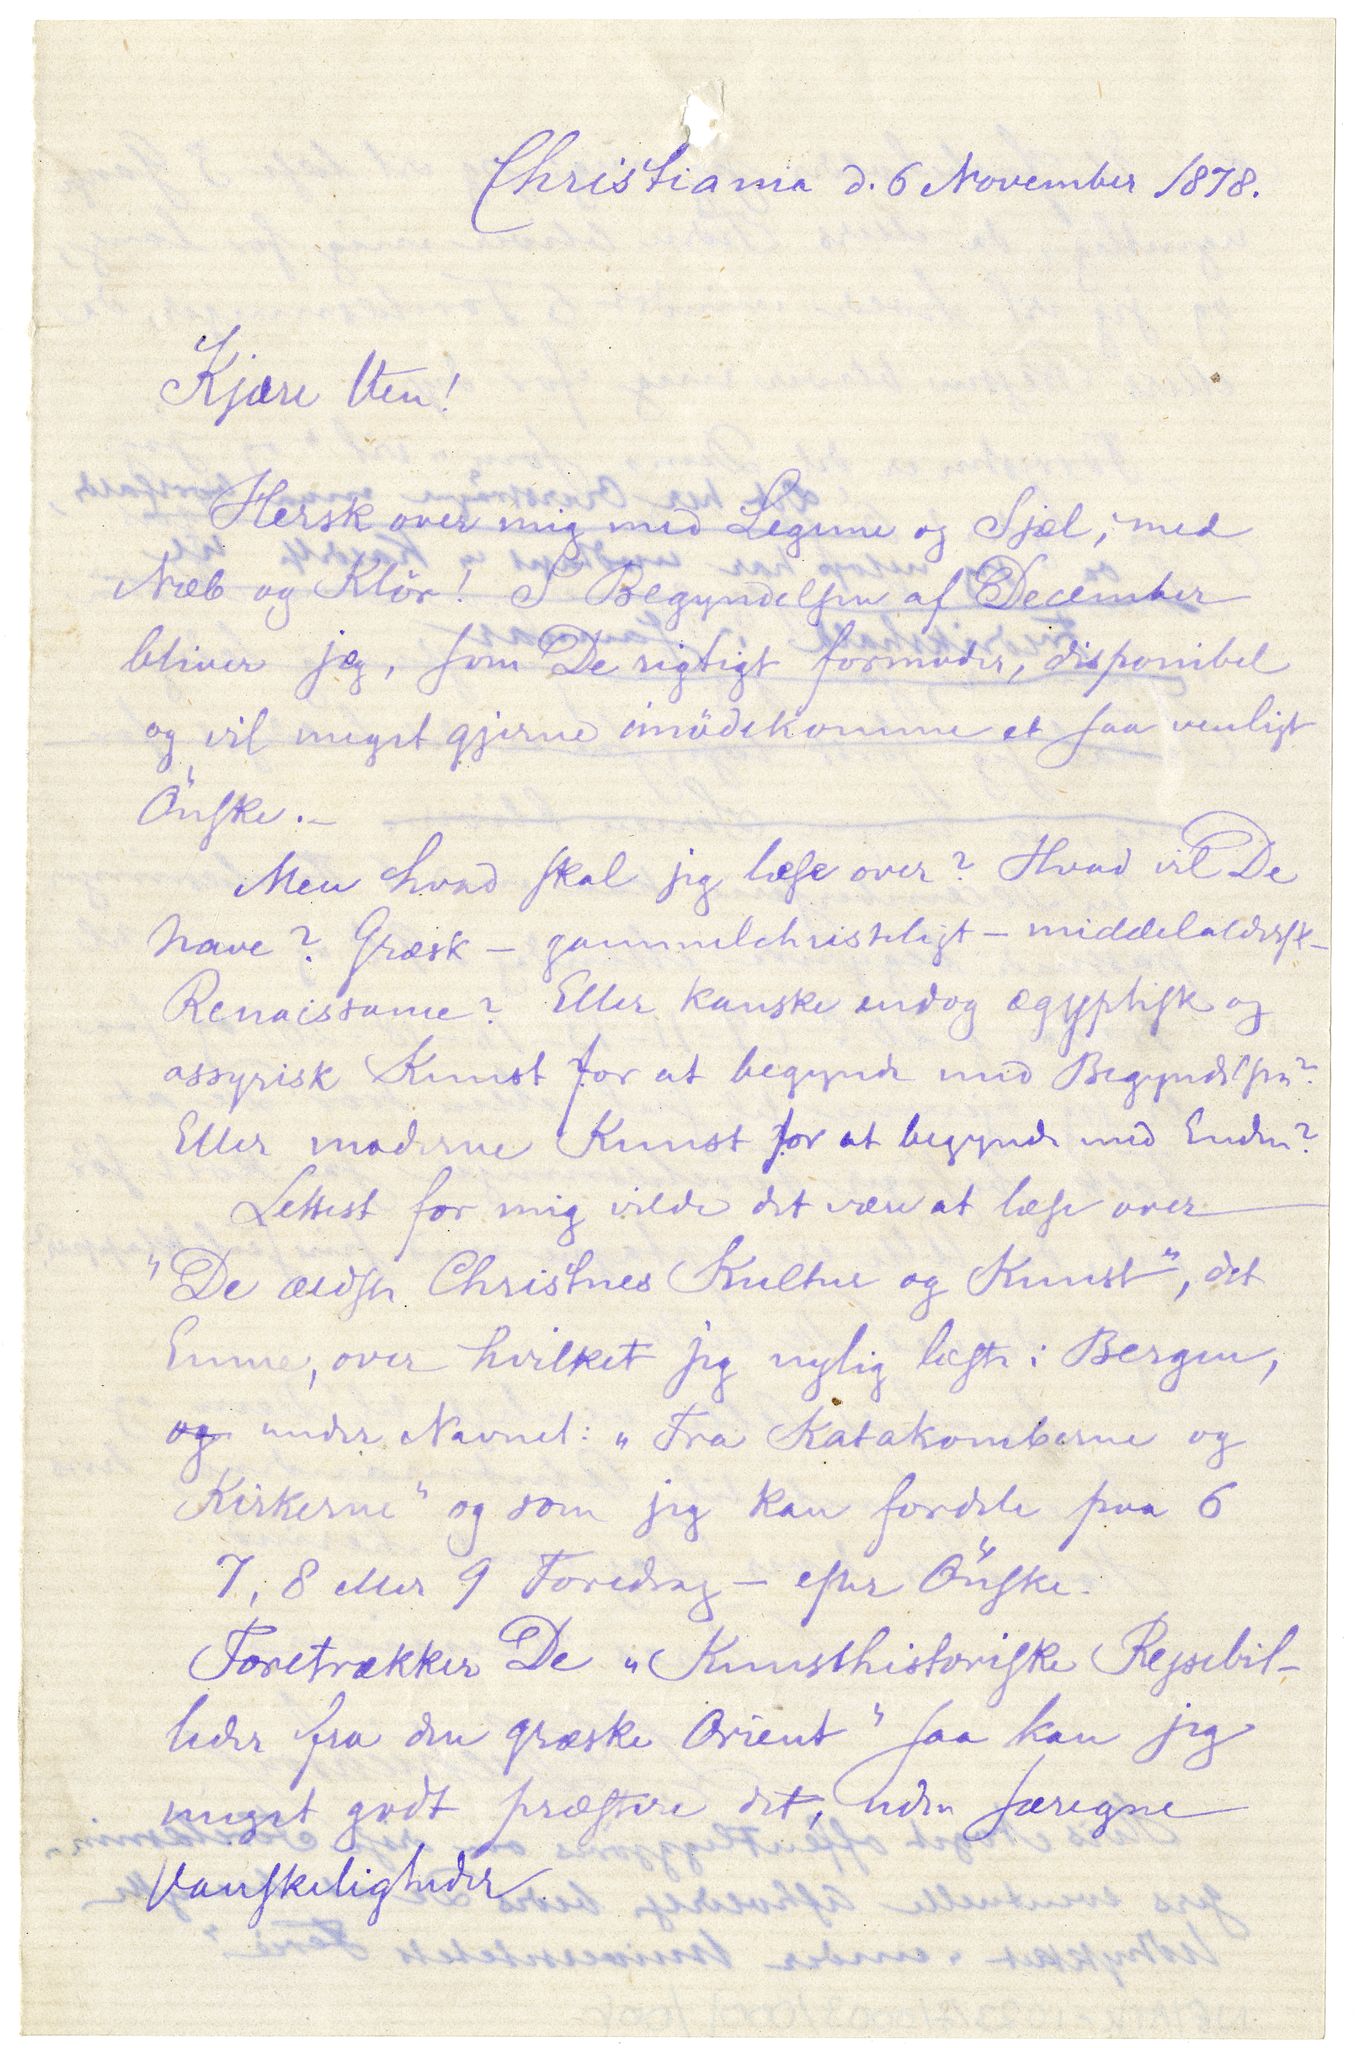 Christiania d. 6 November 1878.
Kjære Ven!
Hersk over mig med Legeme og Sjæl, med
Næb og Klör! I Begyndelsen af December
bliver jeg, som De rigtigt formoder, disponibel
og vil meget gjerne imödekomme et saa venligt
Önske. –
Men hvad skal jeg læse over? Hvad vil De
have? Græsk – gammelchristeligt – middelaldersk –
Renaissance? Eller kanske endog ægyptisk og
assyrisk Kunst for at begynde med Begyndelsen?
Eller moderne Kunst for at begynde med Enden?
Lettest for mig vilde det være at læse over
"De ældste Christnes Kultur og Kunst", det
Emne, over hvilket jeg nylig læste i Bergen,
og under Navnet: "Fra Katakomberne og
Kirkerne" og som jeg kan fordele paa 6
7, 8 eller 9 Foredrag – efter Önske.
Foretrækker De "Kunsthistoriske Rejsebil-
leder fra den græske Orient" saa kan jeg
meget godt præstere det, uden særegne
Vanskeligheder